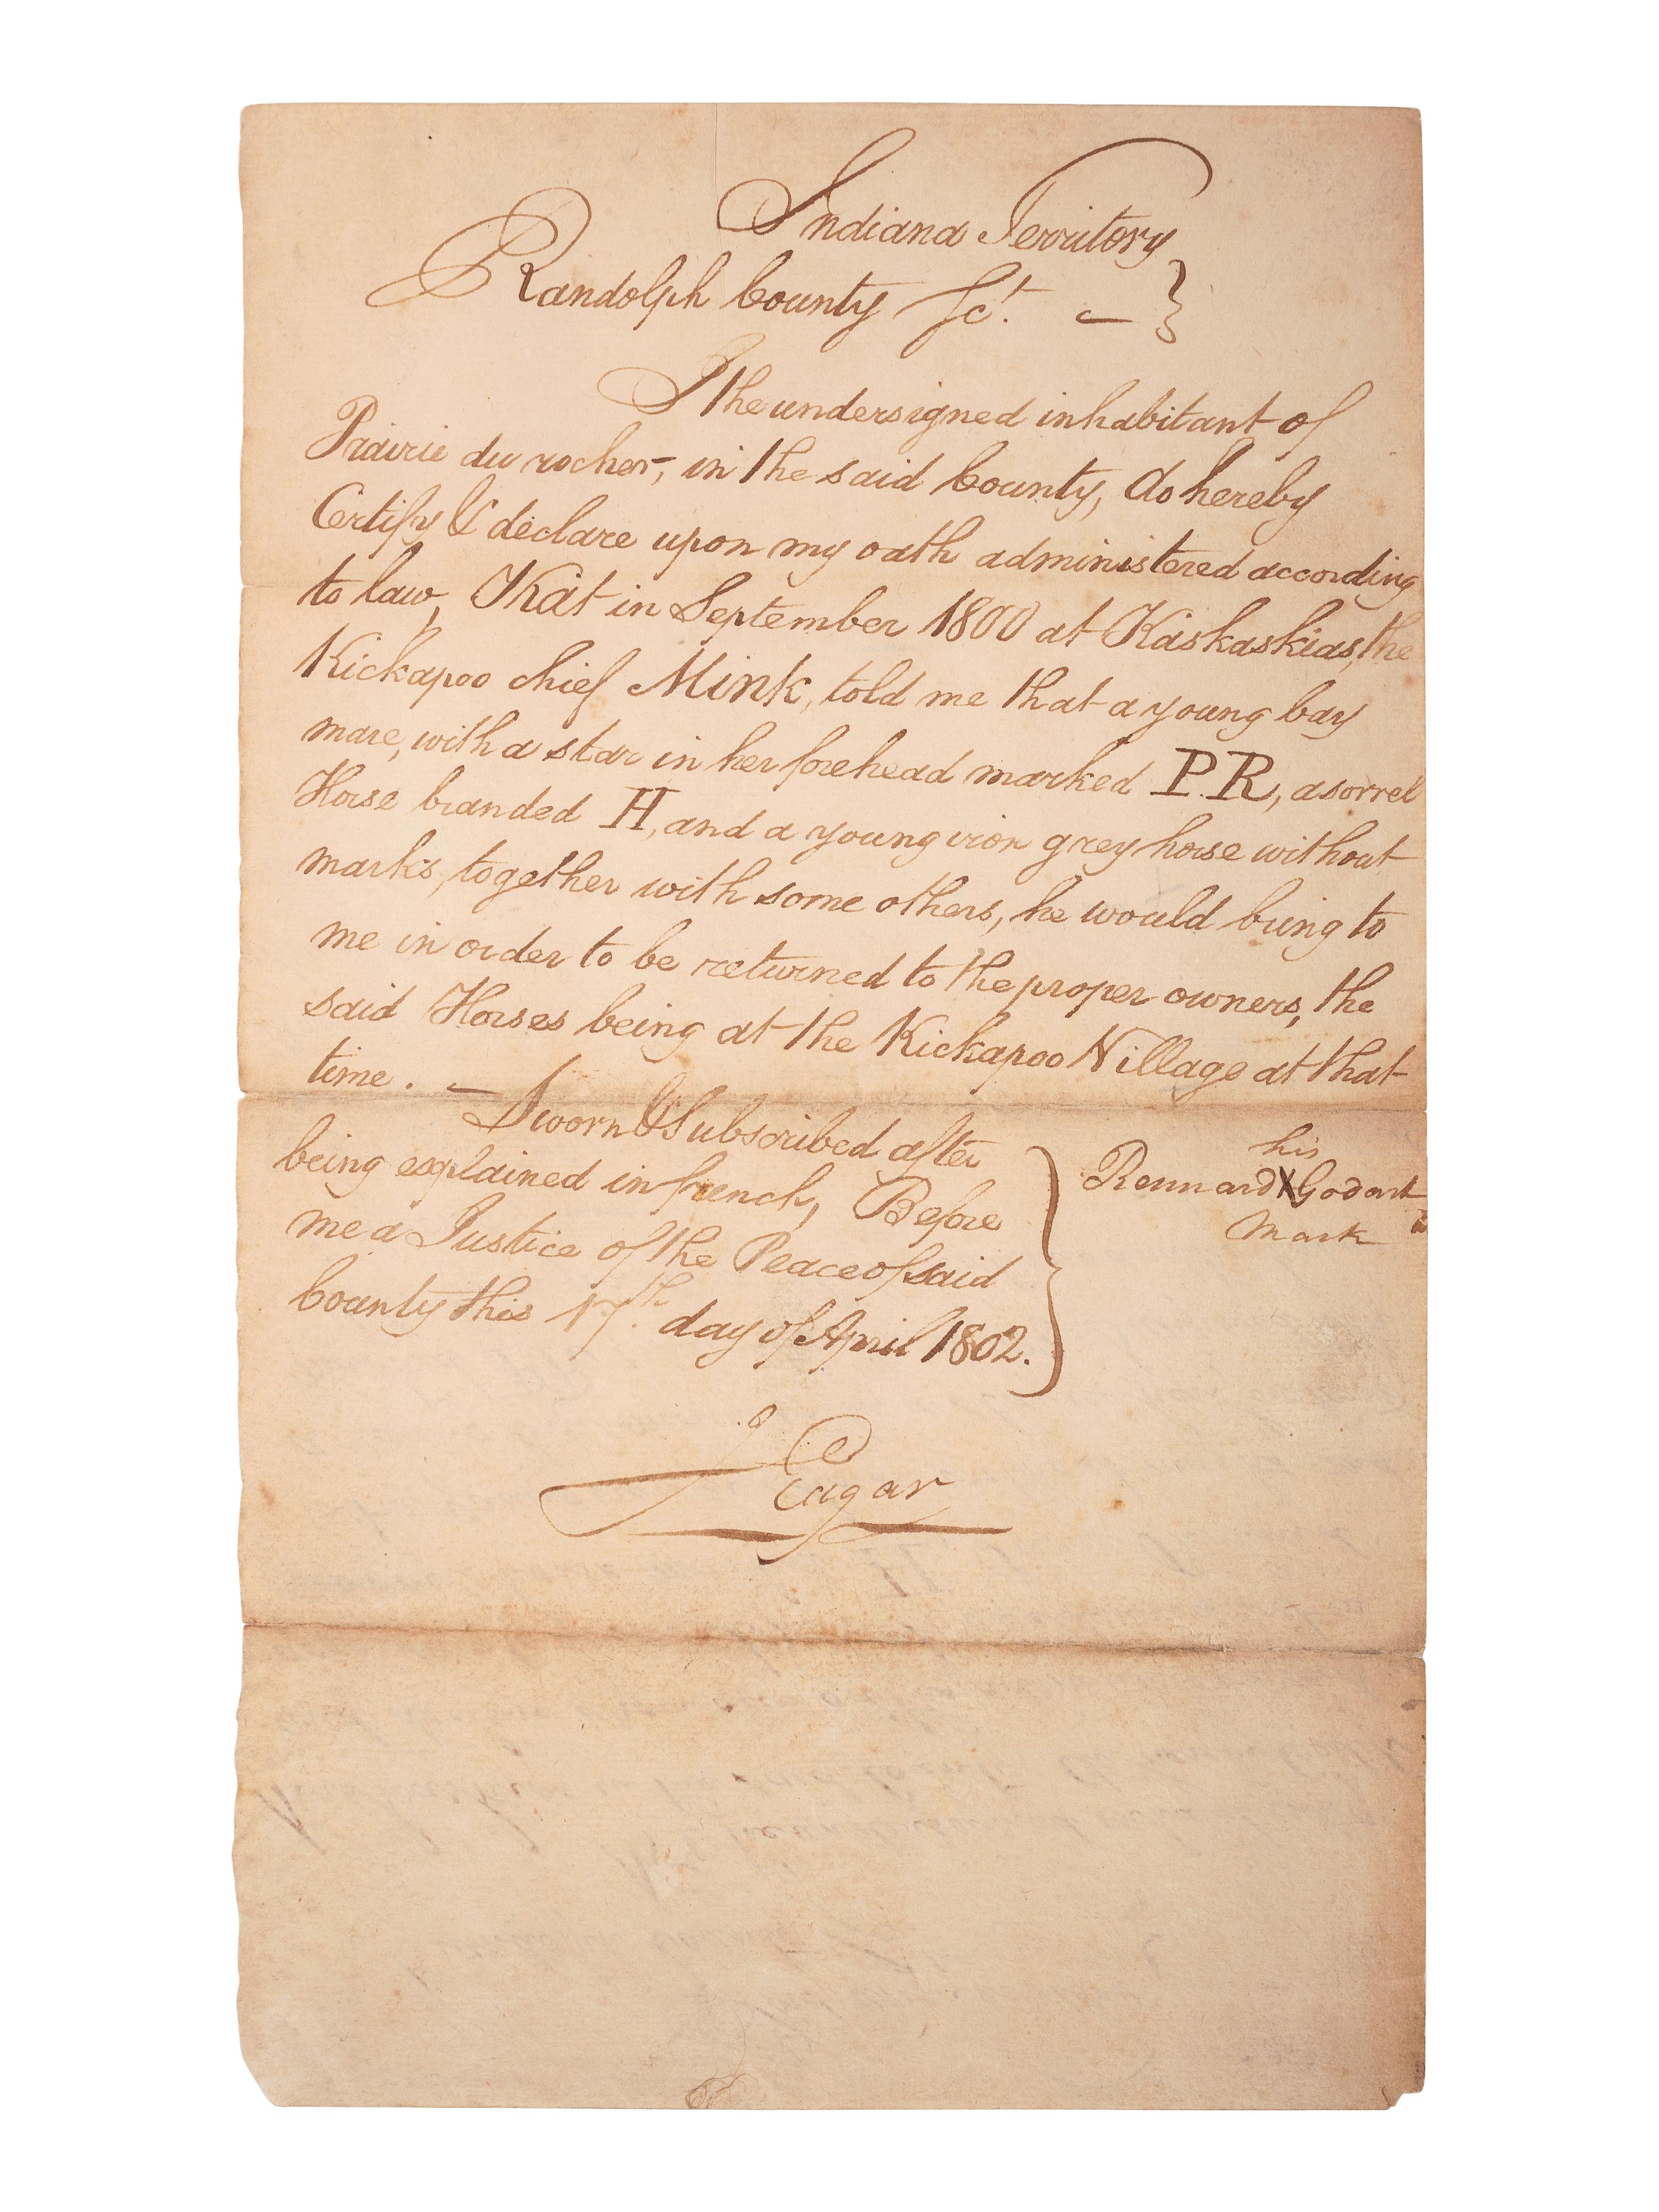 Indiana Territory
Randolph County Sct. — }
I the undersigned inhabitant of
Prairie du rocher, in the said County, do hereby
Certify & declare upon my oath administered according
to law, That in September 1800 at Kaskaskias, the
Kickapoo chief Mink, told me that a young bay
mare, with a star in her forehead marked P.R, a sorrel
Horse branded H, and a young iron grey horse without
marks, together with some others, he would bring to
me in order to be returned to the proper owners, the
said Horses being at the Kickapoo Village at that
time. —
Sworn & Subscribed after
being explained in french, Before
me a Justice of the Peace of said
County this 17th. day of April 1802.
his
Rennard X Godart
Mark
J Edgar